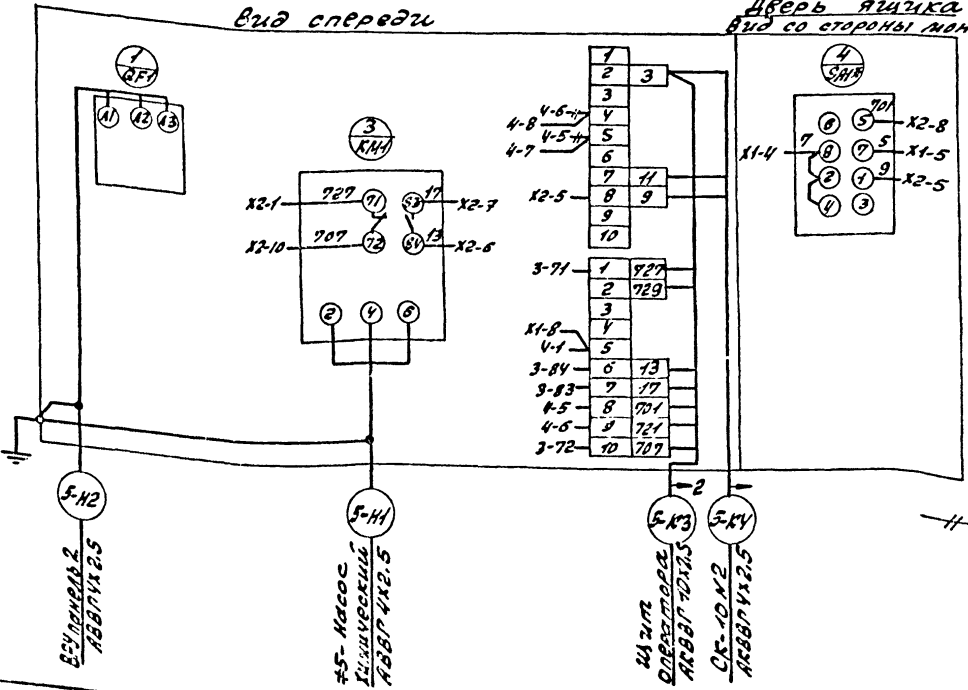 Вид спереди
Дверь ящика
Вид со стороны мон
1
QF1
A1 A2 A3
3
КМ1
X2-1 727 71 83 17 X2-7
X2-10 707 72 84 13 X2-6
2 4 6
1
2 3
3
4-6 4
4-8
4-5 5
4-7
6
7 11
X2-5 8 9
9
10
3-71 1 727
2 729
3
X1-8 4
4-1 5
3-84 6 13
3-83 7 17
4-5 8 701
4-6 9 721
3-72 10 707
4
6 5 701 X2-8
X1-4 7 8 7 5 X1-5
2 1 9 X2-5
4 3
2
5-Н2
5-Н1
5-К3
5-К4
панель 2
АВВГ 4х2.5
#5-Насос
Химический
АВВГ 4х2.5
Щит
оператора
АКВВГ 10х2.5
СК-10 N2
АКВВГ 4х2.5